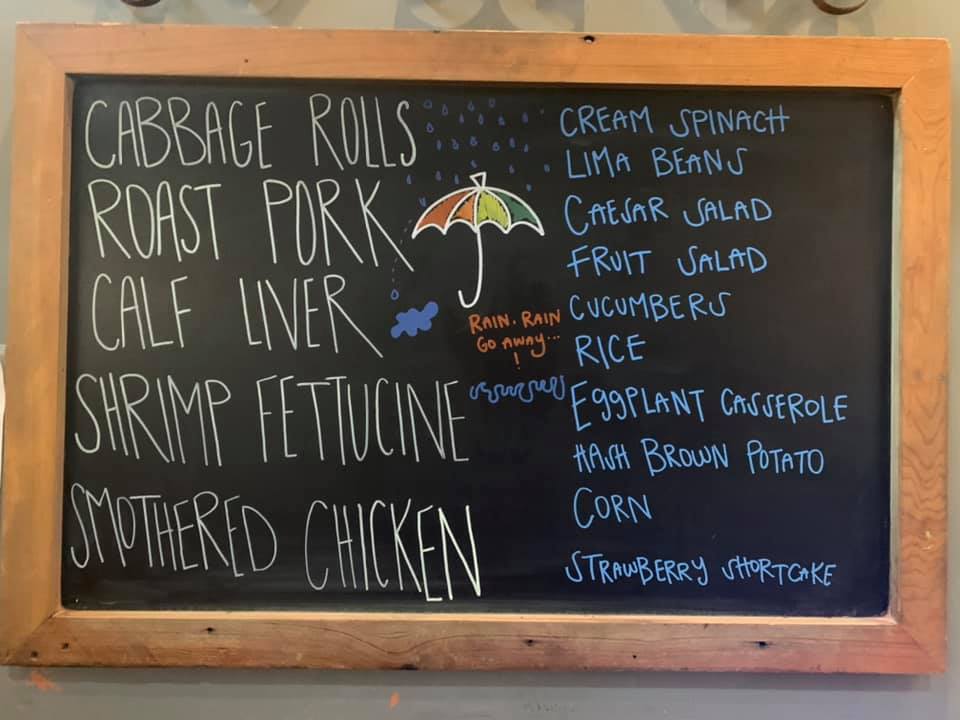 CABBAGE ROLLS
ROAST PORK
CALF LIVER
SHRIMP FETTUCINE
SMOTHERED CHICKEN
RAIN, RAIN
GO AWAY...
!
CREAM SPINACH
LIMA BEANS
CAESAR SALAD
FRUIT SALAD
CUCUMBERS
RICE
EggPLANT CASSEROLE
HASH BROWN POTATO
CORN
STRAWBERRY SHORTCAKE